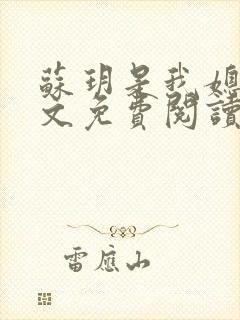 蘇玥是我媳
文免費閱讀
雷應山